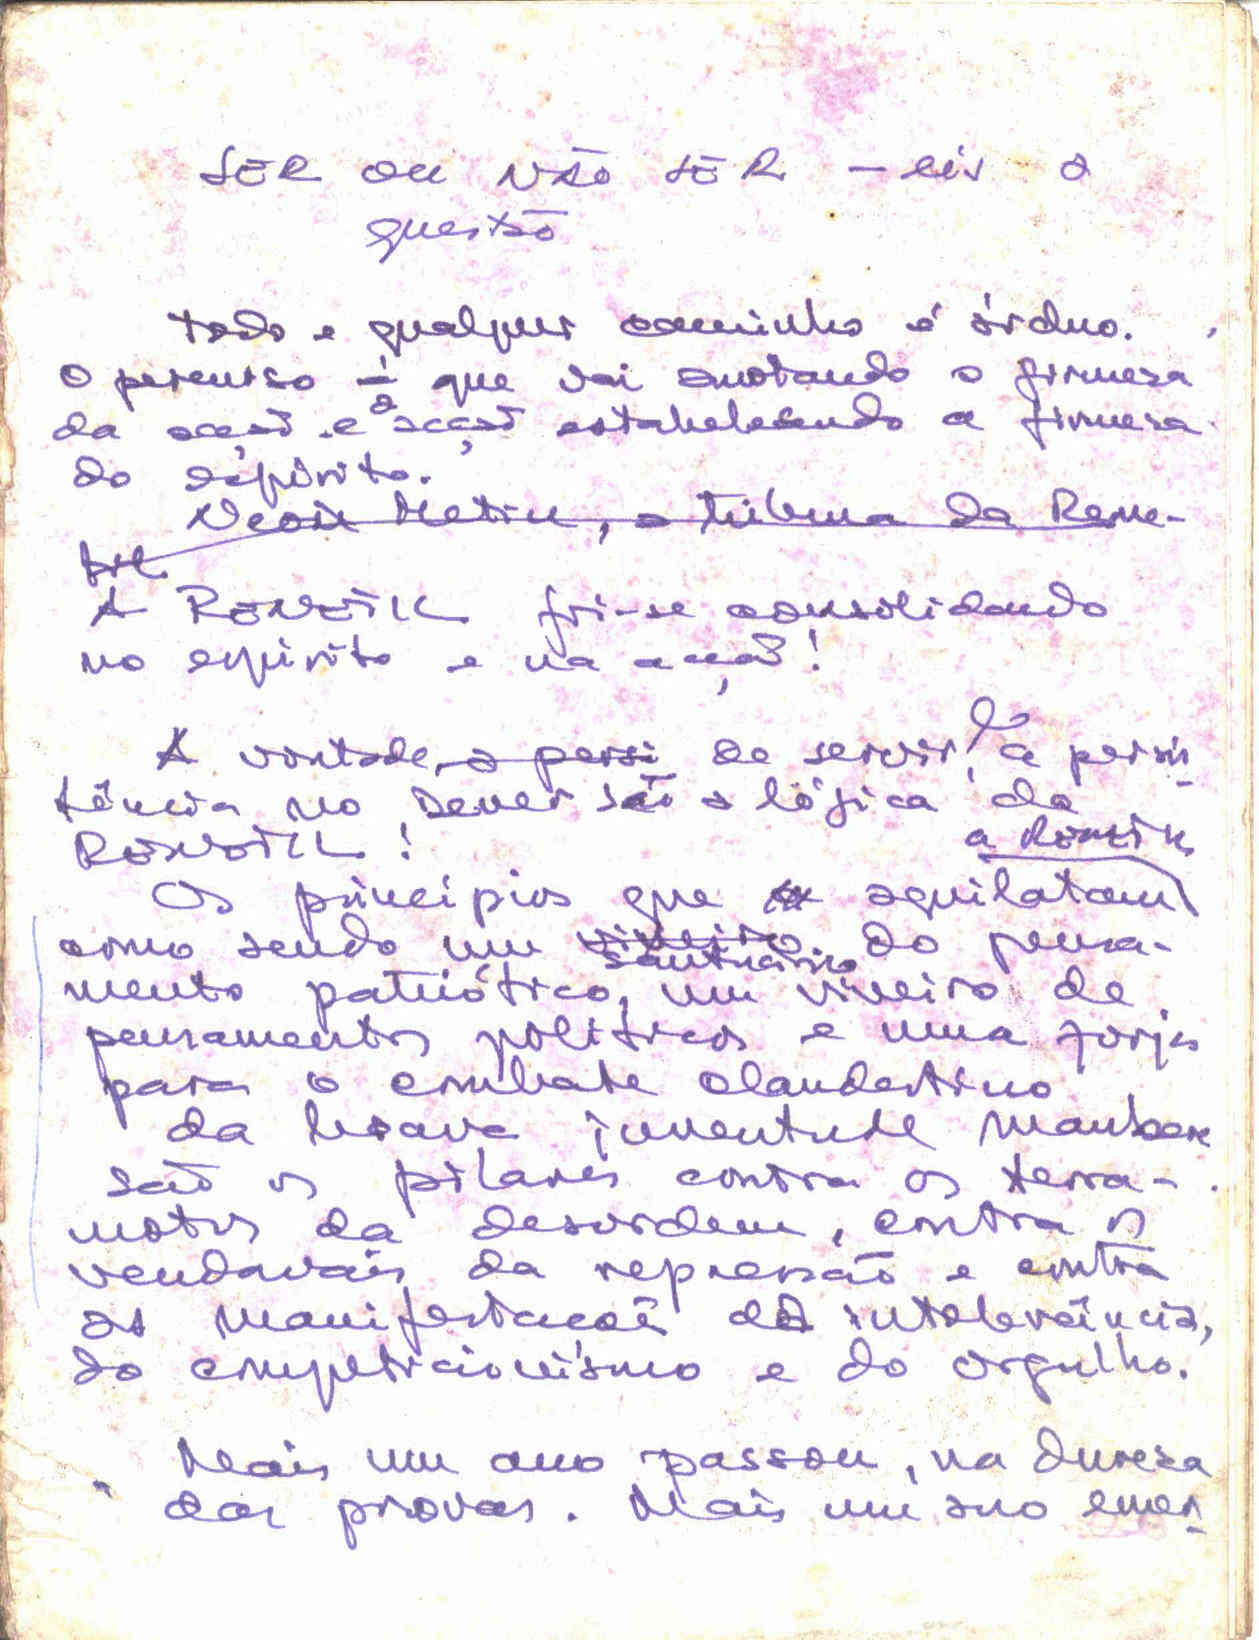 SER ou NÃO SER – eis a
questão
Todo e qualquer caminho é árduo.
O percurso é que vai anotando a firmeza
da acção e a acção estabelecendo a firmeza
do espírito.
Neon Metin, a tribuna da Rene-
til
A RENETIL foi-se consolidando
no espírito e na acção!
A vontade, a persi de servir, a persis-
tência no Dever são a lógica da
RENETIL!
a Renetil
Os princípios que aquilatam
como sendo um viveiro do pensa-
santuário
mento patriótico, um viveiro de
pensamentos políticos e uma forja
para o combate clandestino
da brava juventude maubere
são os pilares contra os terra-
motos da desordem, contra os
vendavais da repressão e contra
as manifestações da intolerância,
do competicionismo e do orgulho.
Mais um ano passou, na dureza
das provas. Mais um ano emer-